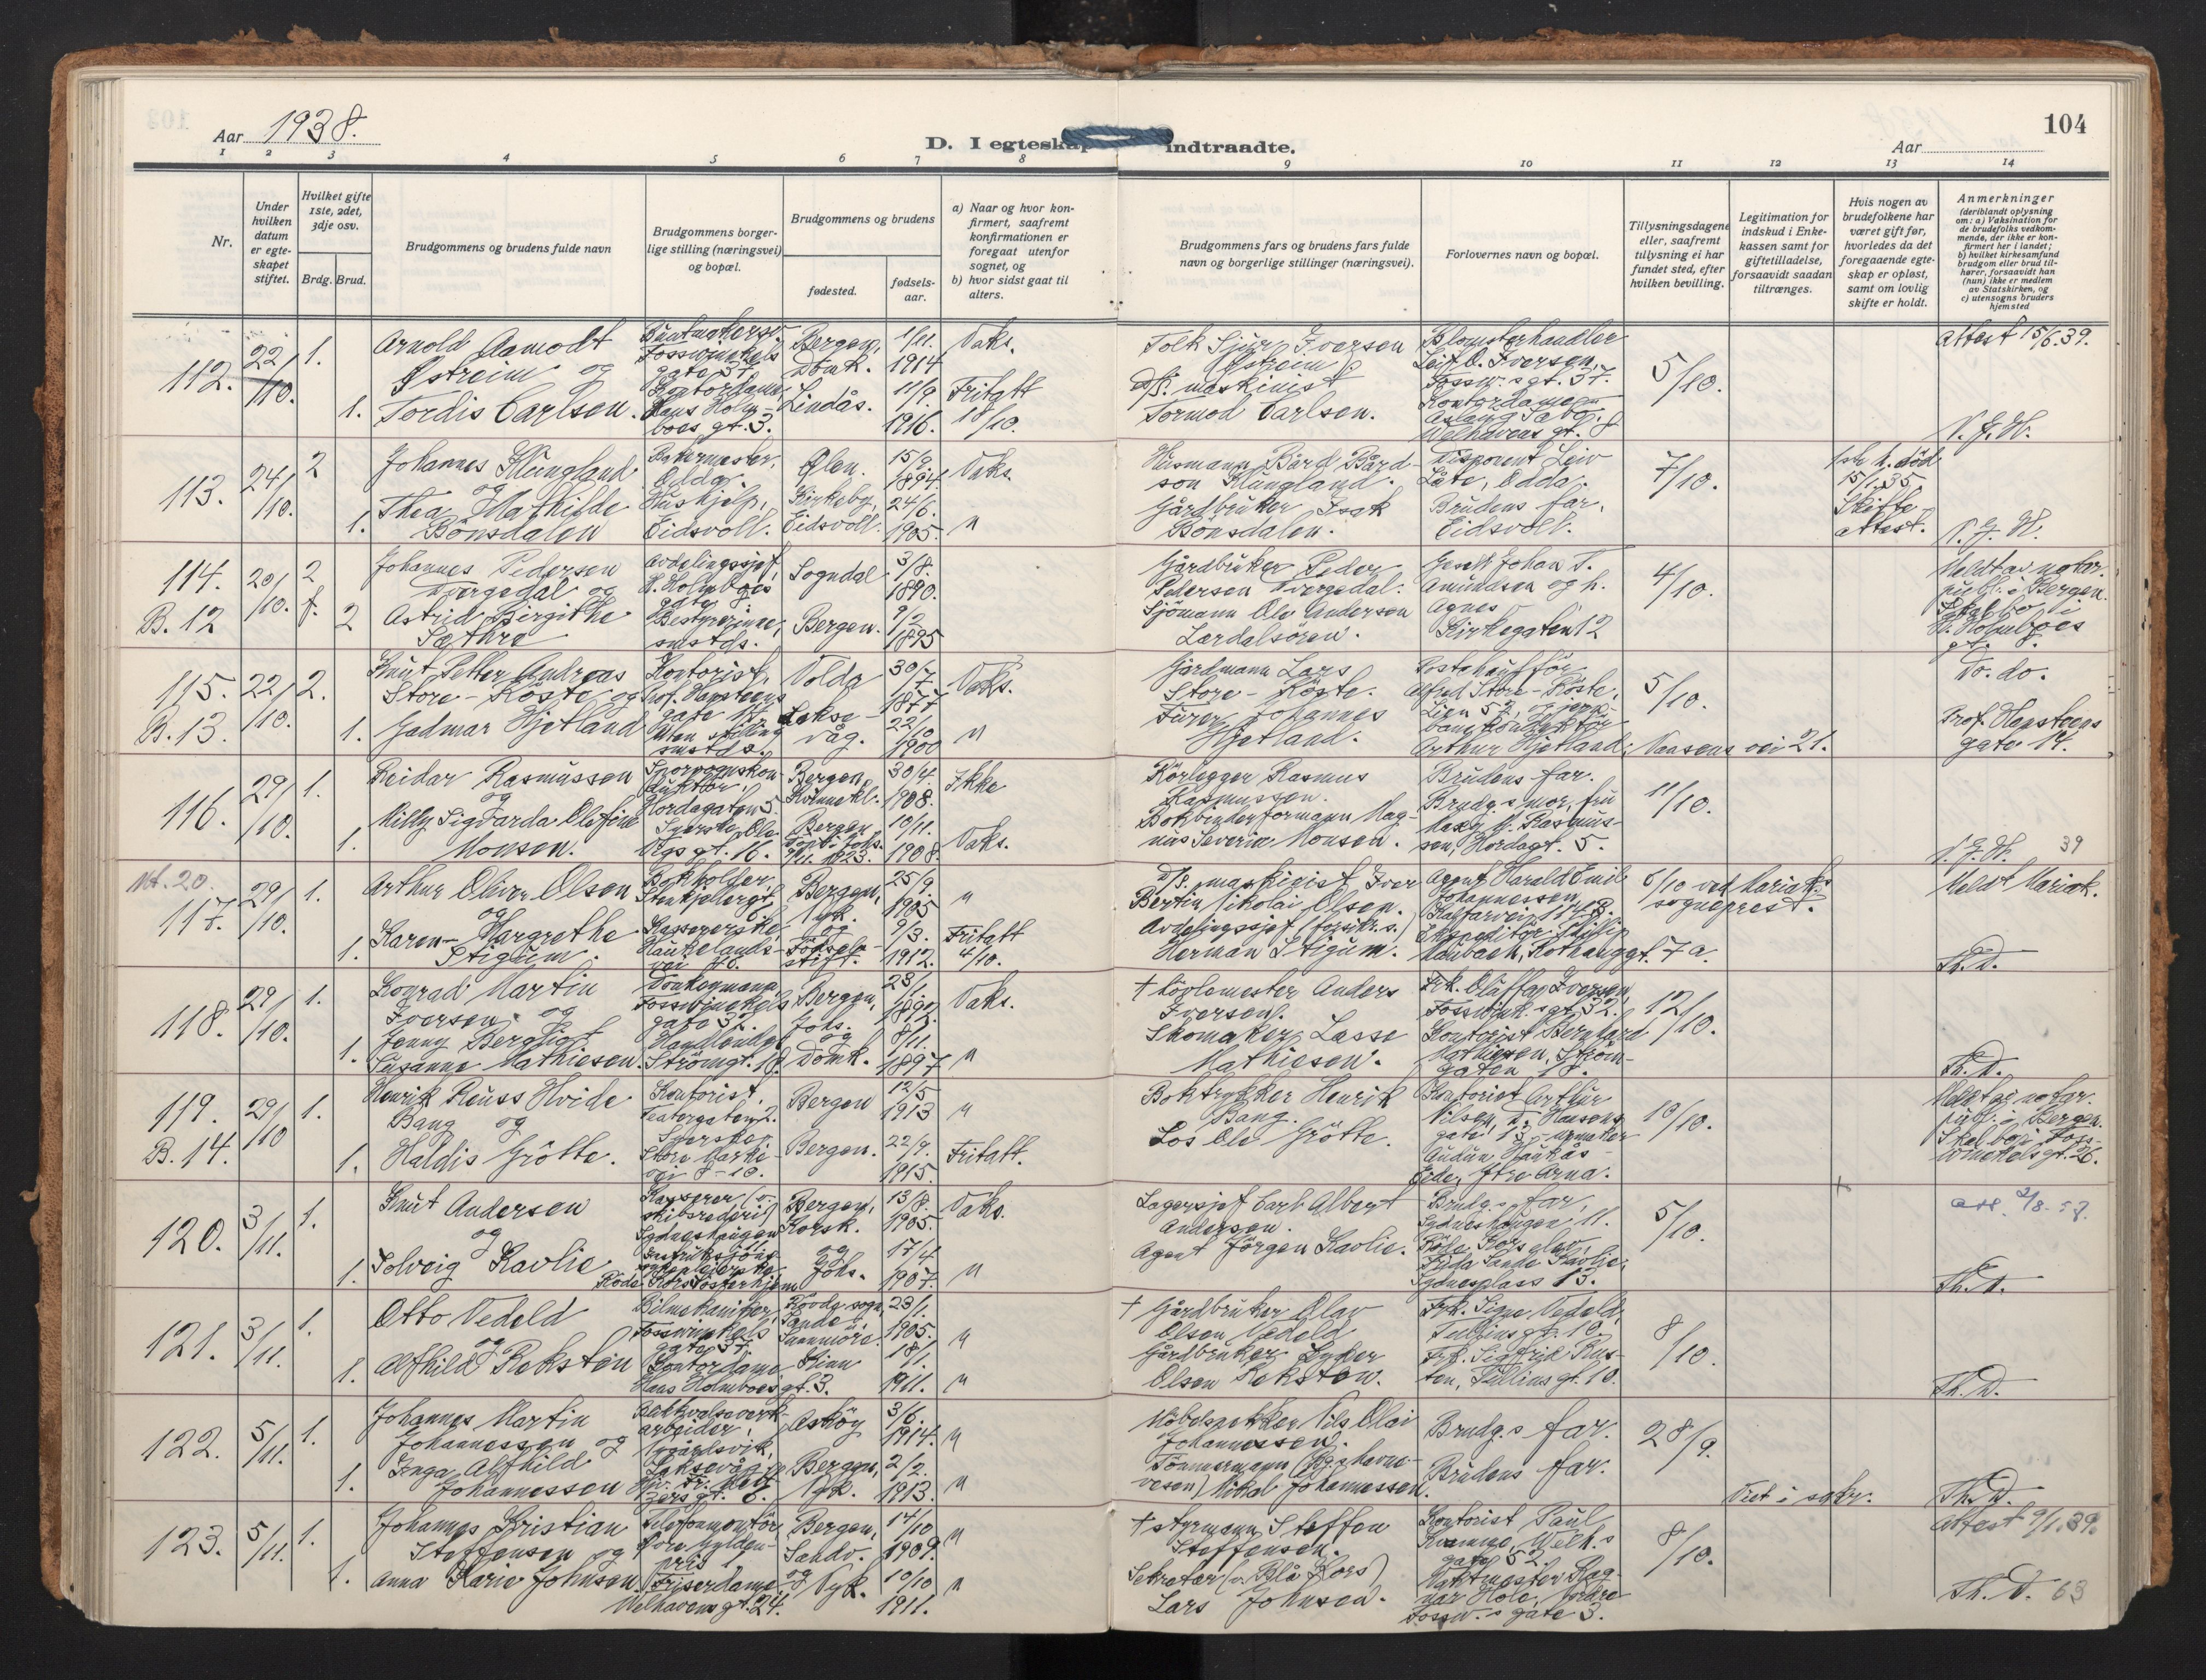 Aar 1938.
D. I egteskap indtraadte.
104
Aar
1 2 3 4 5 6 7 8 9 10 11 12 13 14
Nr.
Under hvilken datum er egteskapet stiftet.
Hvilket gifte 1ste, 2det, 3dje osv.
Brdg. Brud.
Brudgommens og brudens fulde navn
Brudgommens borgerlige stilling (næringsvei) og bopæl.
Brudgommens og brudens
fødested.
fødselsaar.
a) Naar og hvor konfirmert, saafremt konfirmationen er foregaat utenfor sognet, og
b) hvor sidst gaat til alters.
Brudgommens fars og brudens fars fulde navn og borgerlige stillinger (næringsvei).
Forlovernes navn og bopæl.
Tillysningsdagene eller, saafremt tillysning ei har fundet sted, efter hvilken bevilling.
Legitimation for indskud i Enkekassen samt for giftetilladelse, forsaavidt saadan tiltrænges.
Hvis nogen av brudefolkene har været gift før, hvorledes da det foregaaende egteskap er opløst, samt om lovlig skifte er holdt.
Anmerkninger
(deriblandt oplysning om: a) Vaksination for de brudefolks vedkommende, der ikke er konfirmert her i landet; b) hvilket kirkesamfund brudgom eller brud tilhører, forsaavidt han (hun) ikke er medlem av Statskirken, og c) utensogns bruders hjemsted
112. 22/10. 1. Arnold Aamodt Østreim og
Fosswinckels gate 37. Bergen, Domk. 1/11. 1914 Vaks.
Østreim Blomsterhandler Leif O. Iversen, Fossw.s gt. 37. 5/10. Attest 15/6.39.
1. Tordis Carlsen. Kontordame, Hans Holmboes gt. 3. Lindås. 11/9. 1916. Fritatt 10/10.
D/S. maskinist Tormod Carlsen. Kontordame
113. 24/10. 2 Johannes Klungland og
Bakermester, Odda. Ølen. 15/9 1894. Vaks.
Husmann Bård Bårdson Klungland. Disponent Leiv Låte, Odda. 7/10.
15/1.35. Skifteattest.
1. Thea Mathilde Bönsdalen Hushjelp, Eidsvoll. Kirkeby, Eidsvoll. 24/6. 1905. "
Gårdbruker Isak Bönsdalen. Brudens far, Eidsvoll.
114. B. 12 20/10. 2 f. Johannes Pedersen Tvergedal og
Avdelingssjef, H. Holmboes gate 8 Sogndal 3/8. 1890.
Gårdbruker Peder Pedersen Johan T. Amundsen og h. Agnes Kirkegaten 12 4/10.
Meldt av notar. publ. i Bergen. Skal bo i H. Holmboes gt. 8.
2 Astrid Birgithe Sæthre Bestyrerinne, smstds. Bergen. 9/2 1895
Sjömann Ole Andersen Lærdalsören.
115. B. 13. 22/10. 2. Knut Petter Andreas Store-Röste og
Kontorist, Prof. Hansteens gate 17. Volda 30/7 1877 Vaks.
Gårdmann Lars Store-Röste. Alfred Store-Röste, 5/10. Do. do.
1. Gudmar Hjetland Uten stilling smstds. Laksevåg. 22/10 1900 "
Johannes Hjetland. Arthur Hjetland, Vaasens vei 21. Prof. Hansteens gate 17.
116. 29/10. 1. Reidar Rasmussen og
Sporvognskonduktör, Hordagaten 5 Bergen, 30/4. 1908. Ikke
Körlegger Rasmus Rasmussen. Brudens far. 11/10.
1. Milly Sigvarda Olefine Monsen. Syerske, Ole Vigs gt. 16. Bergen 10/11. 1908. Vaks.
Bokbinderformann Magnus Severin Monsen. Brudg.s mor, fru Rasmussen, Hordagt. 5. 39
Nt. 20.
117. 29/10. 1. Arthur Oliver Olsen og
Bokholder, Bergen, Nyk. 25/9. 1905 "
D/S. maskinist Iver Bertin Nikolai Olsen. Agent Harald Emil Johannessen, Kalfarvei 6/10 ved Mariak. sogneprest. Meldt Mariak.
1. Karen-Margrethe Stigum. Kassererske, Haukelandsvei Födselsstift. 9/3. 1912. Fritatt 4/10.
Avdelingssjef Herman Stigum. Ekspeditör Maubach, Rothauggt. 7a. Th.D.
118. 29/10. 1. Konrad Martin Iversen og
Donkeymann, Fosswinckels gate 32. Bergen, Johs. og 1892. Vaks.
† Anders Iversen. Frk. Olaffa Iversen, Fosswink.s gt. 32. 12/10.
1. Jenny Bergliot Susanne Mathiesen. Strömgt. 18. Domk. 8/11. 1897 "
Skomaker Lasse Mathiesen. Kontorist Bernhard Mathiesen, Strömgaten 18. Th.D.
119. B. 14. 29/10 1. Henrik Reuss Hvide Bang og
Kontorist. Teatergaten 2. Bergen 12/5 1913 "
Boktrykker Henrik Bang. Kontorist Arthur Nilsen, 10/10.
Meldt av notar. publ. i Bergen. Skal bo i Fosswinckelsgt. 26.
1. Haldis Grötte. Syerske, Store Markevei 8-10. Bergen. 22/9. 1915. Fritatt.
Los Ole Grötte. Audun Haukås Ytre Arna.
120. 3/11. 1. Knut Andersen og
Kasserer (v. skibsrederi) Sydneshaugen 11. Bergen, Korsk. og 13/8. 1905. Vaks.
Lagersjef Carl Albert Andersen. Brudg.s far, Sydneshaugen 11. 5/10.
1. Solveig Kavlie Instruksjonssykepleierske, Röde Kors Sösterhjem Johs. 17/4 1907. "
Agent Jörgen Kavlie. Frida Sande Kavlie, Sydnesplass 13. Th.D.
121. 3/11. 1. Otto Vedeld og
Bilmekaniker, Fosswinckels gate 37. Rovde sogn, Sande i Sunnmöre. 23/1. 1905. "
† Gårdbruker Olav Olsen Vedeld Frk. Signe Vedeld, Tulliusgt. 10. 8/10.
1. Alfhild Reksten Kontordame Hans Holmboes gt. 3. Kinn 18/1. 1911. "
Gårdbruker Olsen Reksten. Frk. Sigfrid Tullius gt. 10. Th.D.
122. 5/11. 1. Johannes Martin Johannessen og
Blikkvalseverkarbeider, Nygårdsvik, Laksevåg. Askøy 3/6. 1914. "
Möbelsnekker Nils Olai Johannessen. Brudg.s far. 28/9.
1. Inga Alfhild Johannessen Bergen, Nyk. 2/2. 1913. "
Tömmermann Johannessen. Brudens far. Viet i sakr. Th.D.
123. 5/11. 1. Johannes Kristian Steffensen og
Telefonmontör, Bergen, Sandv. og 14/10 1909. "
† Styrmann Steffen Steffensen. Kontorist Paul Kvamme, Welh.s gate 52. 8/10. Attest 9/1.39.
1. Anna Marie Johnsen. Friserdame Welhavens gt. 24. Nyk. 10/10 1911. "
Sekretær (v. Blå Kors) Lars Johnsen. Vaktmester Ragnar Hole, Nordre Fossw.s gate 3. Th.D. 63